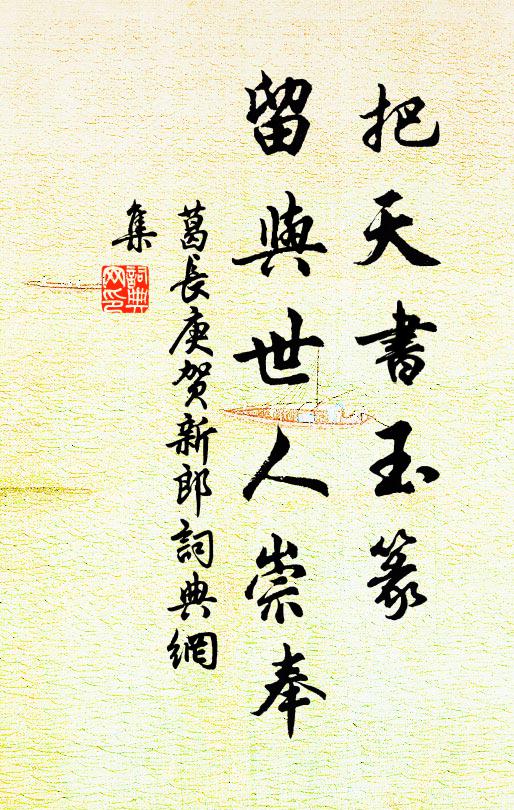 把天書玉篆
留與世人崇奉
葛長庚賀新郎詞典網
集
詞典
网印